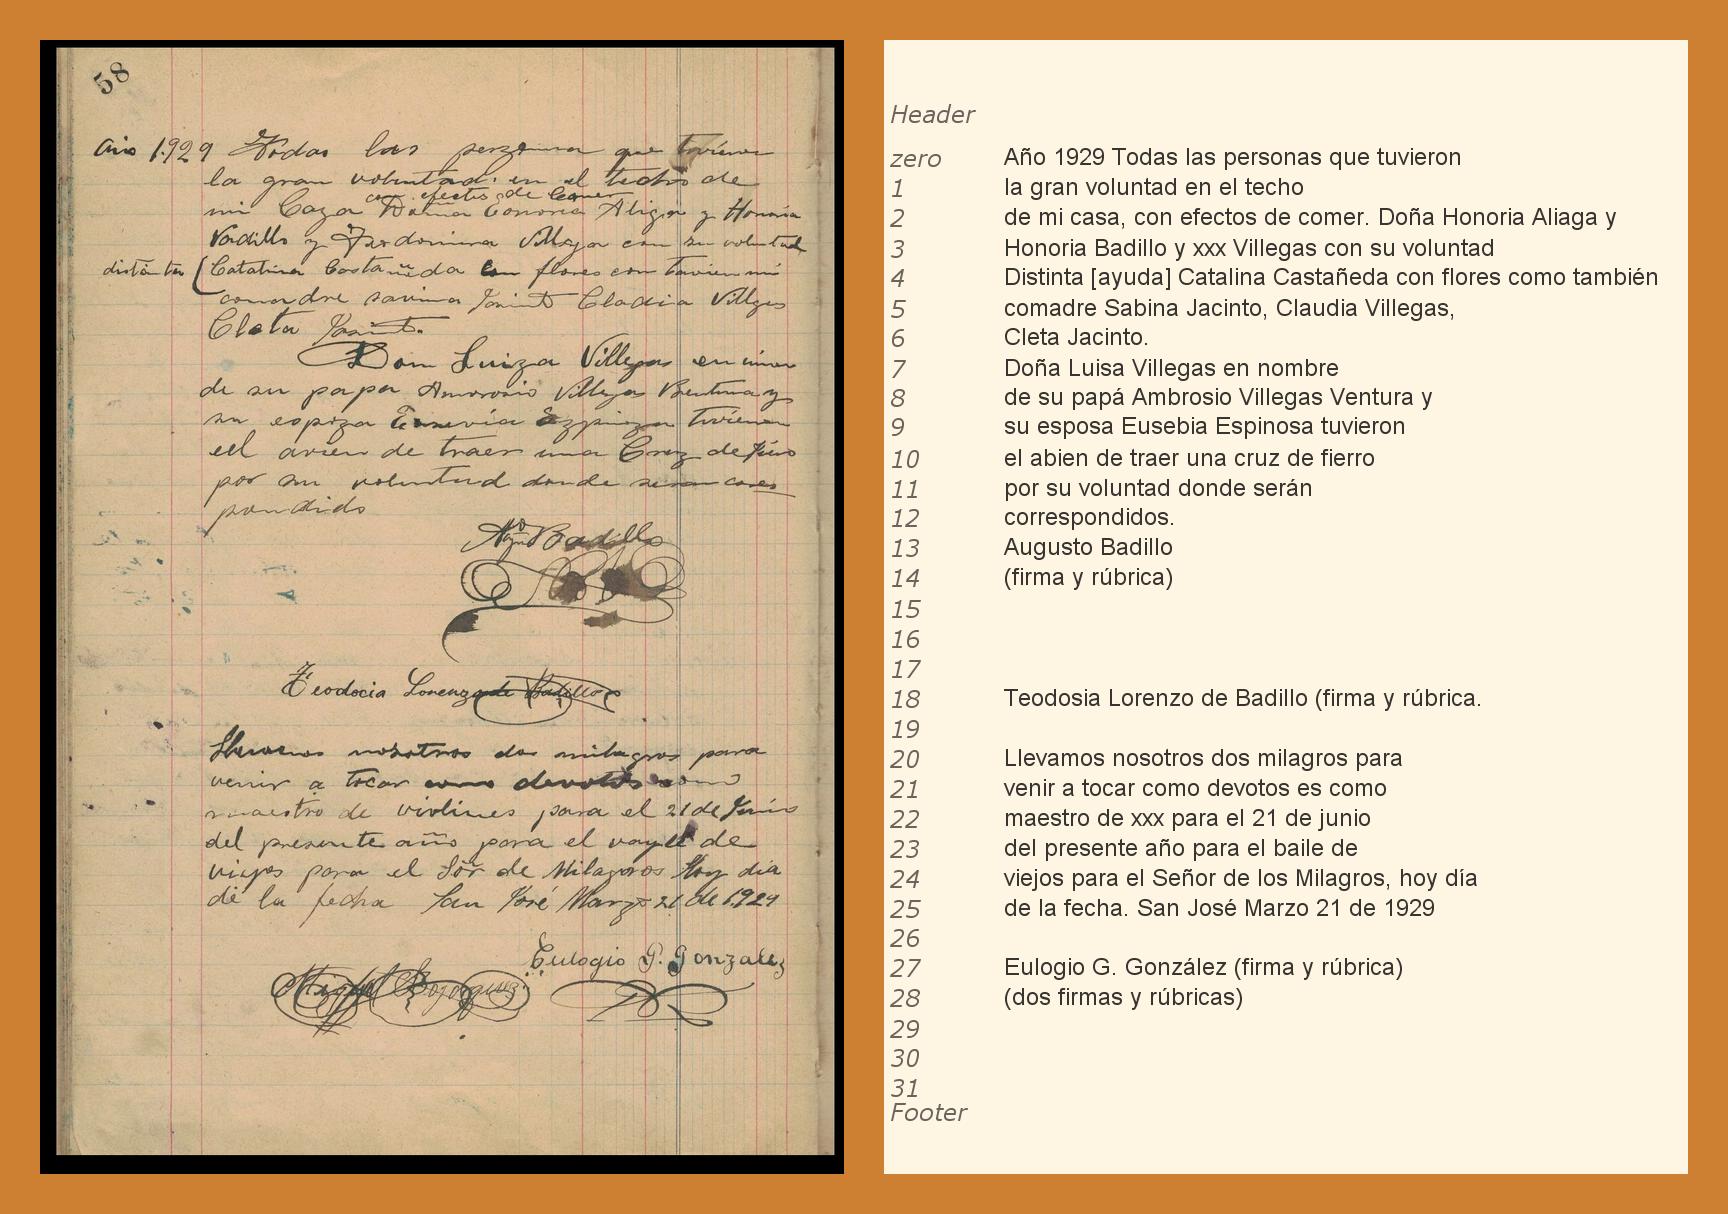 58
Año 1929 Todas las perzonna que tuvieron
la gran voluntad en el techo de
con efectos de Comer
mi Caza Honoria Aliga y Honoria
Vadillo y Villega con su voluntad
distinta (Catalina Castañeda con flores con tavien mi
comadre savina Jasint Cladia Villges
Cleta Jasint.
Luiza Villegas en
de su papa Amorosio Villegas Bentura y
su espoza Eusevia Ezpinoza tuvieron
eel avien de traer una Cruz de fierro
por su voluntud donde seran cores
pondidos
Badillo
Teodocia Lorenzo de Badillo
Llevamos nosotros dos milagros para
venir a tocar como devotos como
maestro de violines para el 21 de Junio
del presente año para el vayle de
viejos para el Sór de Milagros Hoy dia
de la fecha San José Marzo 21 de 1929
Eulogio G. Gonzalez
Miguel Bojorquez
Header
zero Año 1929 Todas las personas que tuvieron
1 la gran voluntad en el techo
2 de mi casa, con efectos de comer. Doña Honoria Aliaga y
3 Honoria Badillo y xxx Villegas con su voluntad
4 Distinta [ayuda] Catalina Castañeda con flores como también
5 comadre Sabina Jacinto, Claudia Villegas,
6 Cleta Jacinto.
7 Doña Luisa Villegas en nombre
8 de su papá Ambrosio Villegas Ventura y
9 su esposa Eusebia Espinosa tuvieron
10 el abien de traer una cruz de fierro
11 por su voluntad donde serán
12 correspondidos.
13 Augusto Badillo
14 (firma y rúbrica)
15
16
17
18 Teodosia Lorenzo de Badillo (firma y rúbrica.
19
20 Llevamos nosotros dos milagros para
21 venir a tocar como devotos es como
22 maestro de xxx para el 21 de junio
23 del presente año para el baile de
24 viejos para el Señor de los Milagros, hoy día
25 de la fecha. San José Marzo 21 de 1929
26
27 Eulogio G. González (firma y rúbrica)
28 (dos firmas y rúbricas)
29
30
31
Footer